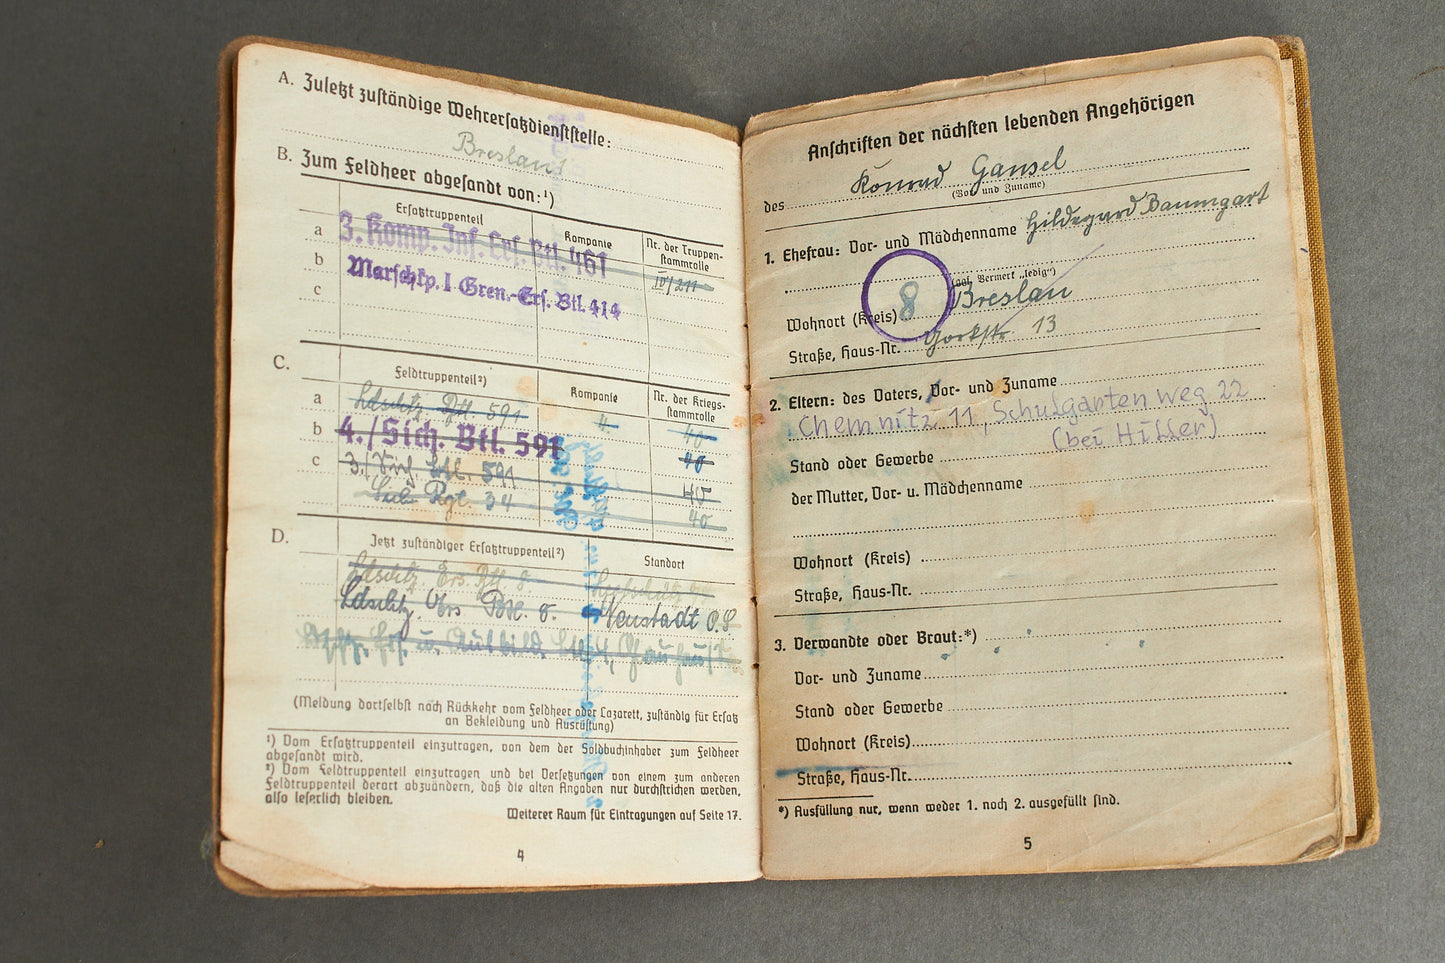 A. Zuletzt zuständige Wehrersatzdienststelle:
Breslau 1
B. Zum Feldheer abgesandt von:¹)
Ersatztruppenteil
Kompanie
Nr. der Truppen-
stammrolle
a 3. Komp. Inf. Btl. 461
IV/211
b Marschkp. I Gren.-Ers. Btl. 414
c
C.
Feldtruppenteil²)
Kompanie
Nr. der Kriegs-
stammrolle
a Ldschtz. Btl. 591 4 40
b 4./Sich. Btl. 591 40
c 3./Sich. Btl. 591 45
Rgt. 34 40
D.
Jetzt zuständiger Ersatztruppenteil²)
Standort
Ldschtz. Ers. Btl. 8
Ldschtz. Ers. Btl. 8. Neustadt O.S
Ers. u. Ausbild.
(Meldung dortselbst nach Rückkehr vom Feldheer oder Lazarett, zuständig für Ersatz
an Bekleidung und Ausrüstung)
¹) Vom Ersatztruppenteil einzutragen, von dem der Soldbuchinhaber zum Feldheer
abgesandt wird.
²) Vom Feldtruppenteil einzutragen und bei Versetzungen von einem zum anderen
Feldtruppenteil derart abzuändern, daß die alten Angaben nur durchstrichen werden,
also leserlich bleiben.
Weiterer Raum für Eintragungen auf Seite 17.
4
Anschriften der nächsten lebenden Angehörigen
des Konrad Gansel
(Vor- und Zuname)
1. Ehefrau: Vor- und Mädchenname Hildegard Baumgart
(ggf. Vermerk „ledig")
Wohnort (Kreis) 8 Breslau
Straße, Haus-Nr. Yorkstr. 13
2. Eltern: des Vaters, Vor- und Zuname
Chemnitz 11, Schulgartenweg 22
(bei Hiller)
Stand oder Gewerbe
der Mutter, Vor- u. Mädchenname
Wohnort (Kreis)
Straße, Haus-Nr.
3. Verwandte oder Braut:*)
Vor- und Zuname
Stand oder Gewerbe
Wohnort (Kreis)
Straße, Haus-Nr.
*) Ausfüllung nur, wenn weder 1. noch 2. ausgefüllt sind.
5